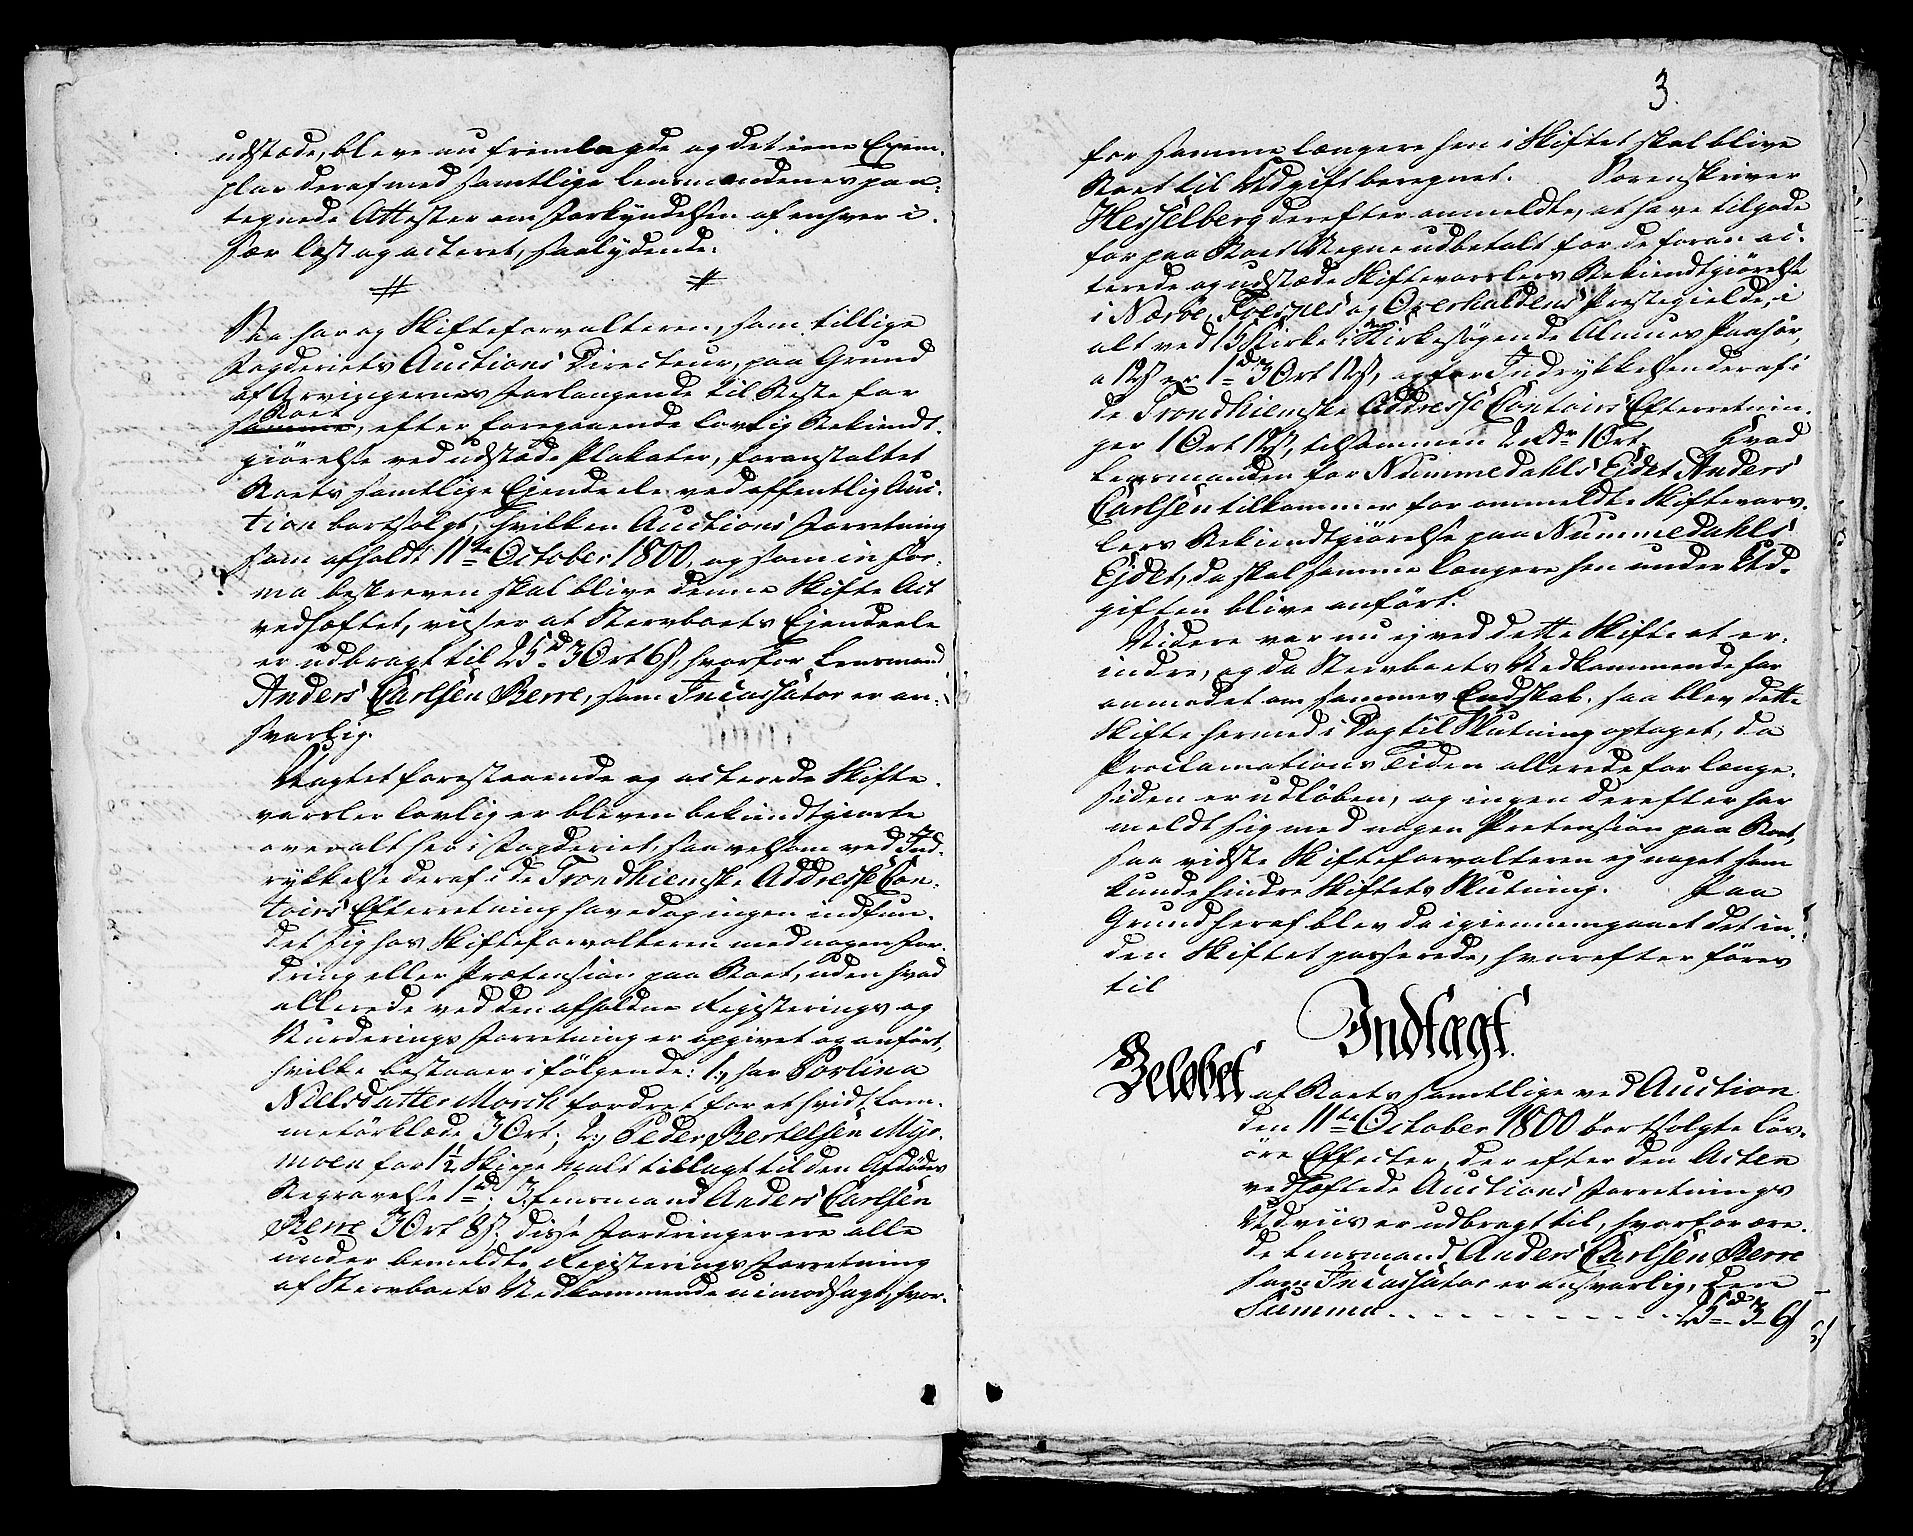 udstæde, bleve nu fremlagde og det iene Exem-
plar deraf med samtlige Lensmændenes paa-
tegnede Attester om Forkyndelsen af enhver i-
sær læst og acteret, saalydende:
# #
Saa har og Skifteforvalteren, som tillige
Fogderiets Auctions Directeur, paa Grund
af Arvingernes Forlangende til Beste for
Boet
samme, efter foregaaende lovlig Bekiendt-
giörelse ved udstæde Plakater, foranstaltet
Boets samtlige Ejendeele ved offentlig Auc-
tion bortsolgt, hvilken Auctions Forretning
som afholdt 11te October 1800, og som in for-
ma beskreven skal blive denne Skifte Act
vedhæftet, viser at Stervboets Ejendeele
er udbragt til 25rd 3 Ort 6s, hvorfor Lensmand
Anders Carlsen Berre, som Incassator er an-
svarlig.
Uagtet forestaaende og acterede Skifte-
varsler lovlig er bleven bekiendtgiorte
overalt her i Fogderiet, saavelsom ved Ind-
rykkelse deraf i de Trondhiemske Addresse Con-
toirs Efterretning have dog ingen indfun-
det sig hos Skifteforvalteren med nogen For-
dring eller Prætension paa Boet, uden hvad
allerede ved den afholdne Registerings og
Vurderings Forretning er opgivet og anført,
hvilke bestaaer i følgende: 1, har Porlina
Nielsdatter Morch fordret for et hvidt Lom-
metörklæde 3 Ort; 2, Peder Bertelsen Myr-
moen for 1½ Skiepe Malt tillagt til den Afdödes
Begravelse 1rd; 3, Lensmand Anders Carlsen
Berre 3 Ort 8s; disse Fordringer ere alle
under bemeldte Registerings Forretning
af Stervboets Vedkommende uimodsagt, hvor-
3.
for samme længere hen i Skiftet skal blive
Boet til Udgift beregnet. Sorenskriver
Hesselberg derefter anmeldte, at have tilgode
for paa Boets Vegne udbetalt for de foran ac-
terede og udstæde Skiftevarslers Bekiendtgiörelse
i Næröe, Foesnes og Overhaldens Prestegielde, i
alt ved 15 Kirker i Kirkesøgende Almues Paahör,
a 12s er 1rd 3 Ort 12s, og for Indrykkelsen deraf i
de Trondhiemske Addresse Contoirs Efterretnin-
ger 1 Ort 12s, tilsammen 2 Rdr 1 Ort. Hvad
Lensmanden for Nummedahls Eidet Anders
Carlsen tilkommer for anmeldte Skiftevars-
lers Bekiendtgiörelse paa Nummedahls
Ejdet, da skal samme længere hen under Ud-
giften blive anført.
Videre var nu ej ved dette Skifte at er-
indre, og da Stervboets Vedkommende har
anmodet om sammes Endskab, saa blev dette
Skifte hermed i Dag til Slutning optaget, da
Proclamations Tiden allerede for længe-
siden er udløben, og ingen derefter har
meldt sig med nogen Prætension paa Boet,
saa vidste Skifteforvalteren ej noget som
kunde hindre Skiftets Slutning. Paa
Grund heraf blev da igiennemgaaet det in-
den Skiftet passerede, hvorefter föres
til
Indtægt.
Beløbet af Boets samtlige ved Auction
den 11te October 1800 bortsolgte Løs-
öre Effecter, der efter den Acten
vedhæftede Auctions Forretnings
Udviis er udbragt til, hvorfor oven-
de Lensmand Anders Carlsen Berre
som Incassator er ansvarlig, den
Summa - - - - - - - - - 25rd 3 - 6s